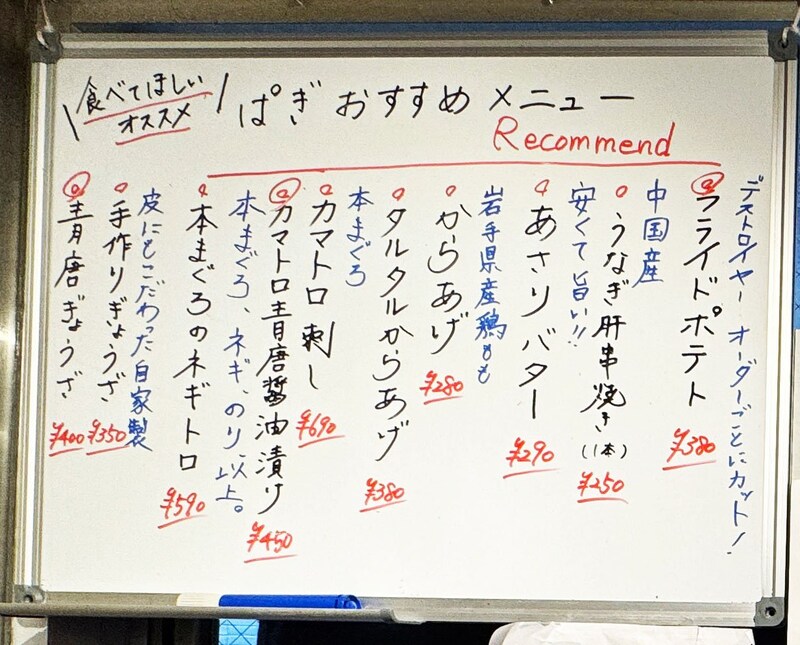 食べてほしい
オススメ
ぱぎ おすすめ メニュー
Recommend
デストロイヤー オーダーごとにカット!
フライドポテト ¥380
中国産
うなぎ肝串焼き(1本) ¥250
安くて旨い!!
あさりバター ¥290
岩手県産鶏もも
からあげ ¥280
タルタルからあげ ¥380
本まぐろ
カマトロ刺し ¥690
カマトロ青唐醤油漬け ¥450
本まぐろ、ネギ、のり以上。
本まぐろのネギトロ ¥590
皮にもこだわった自家製
手作りぎょうざ ¥350
青唐ぎょうざ ¥400